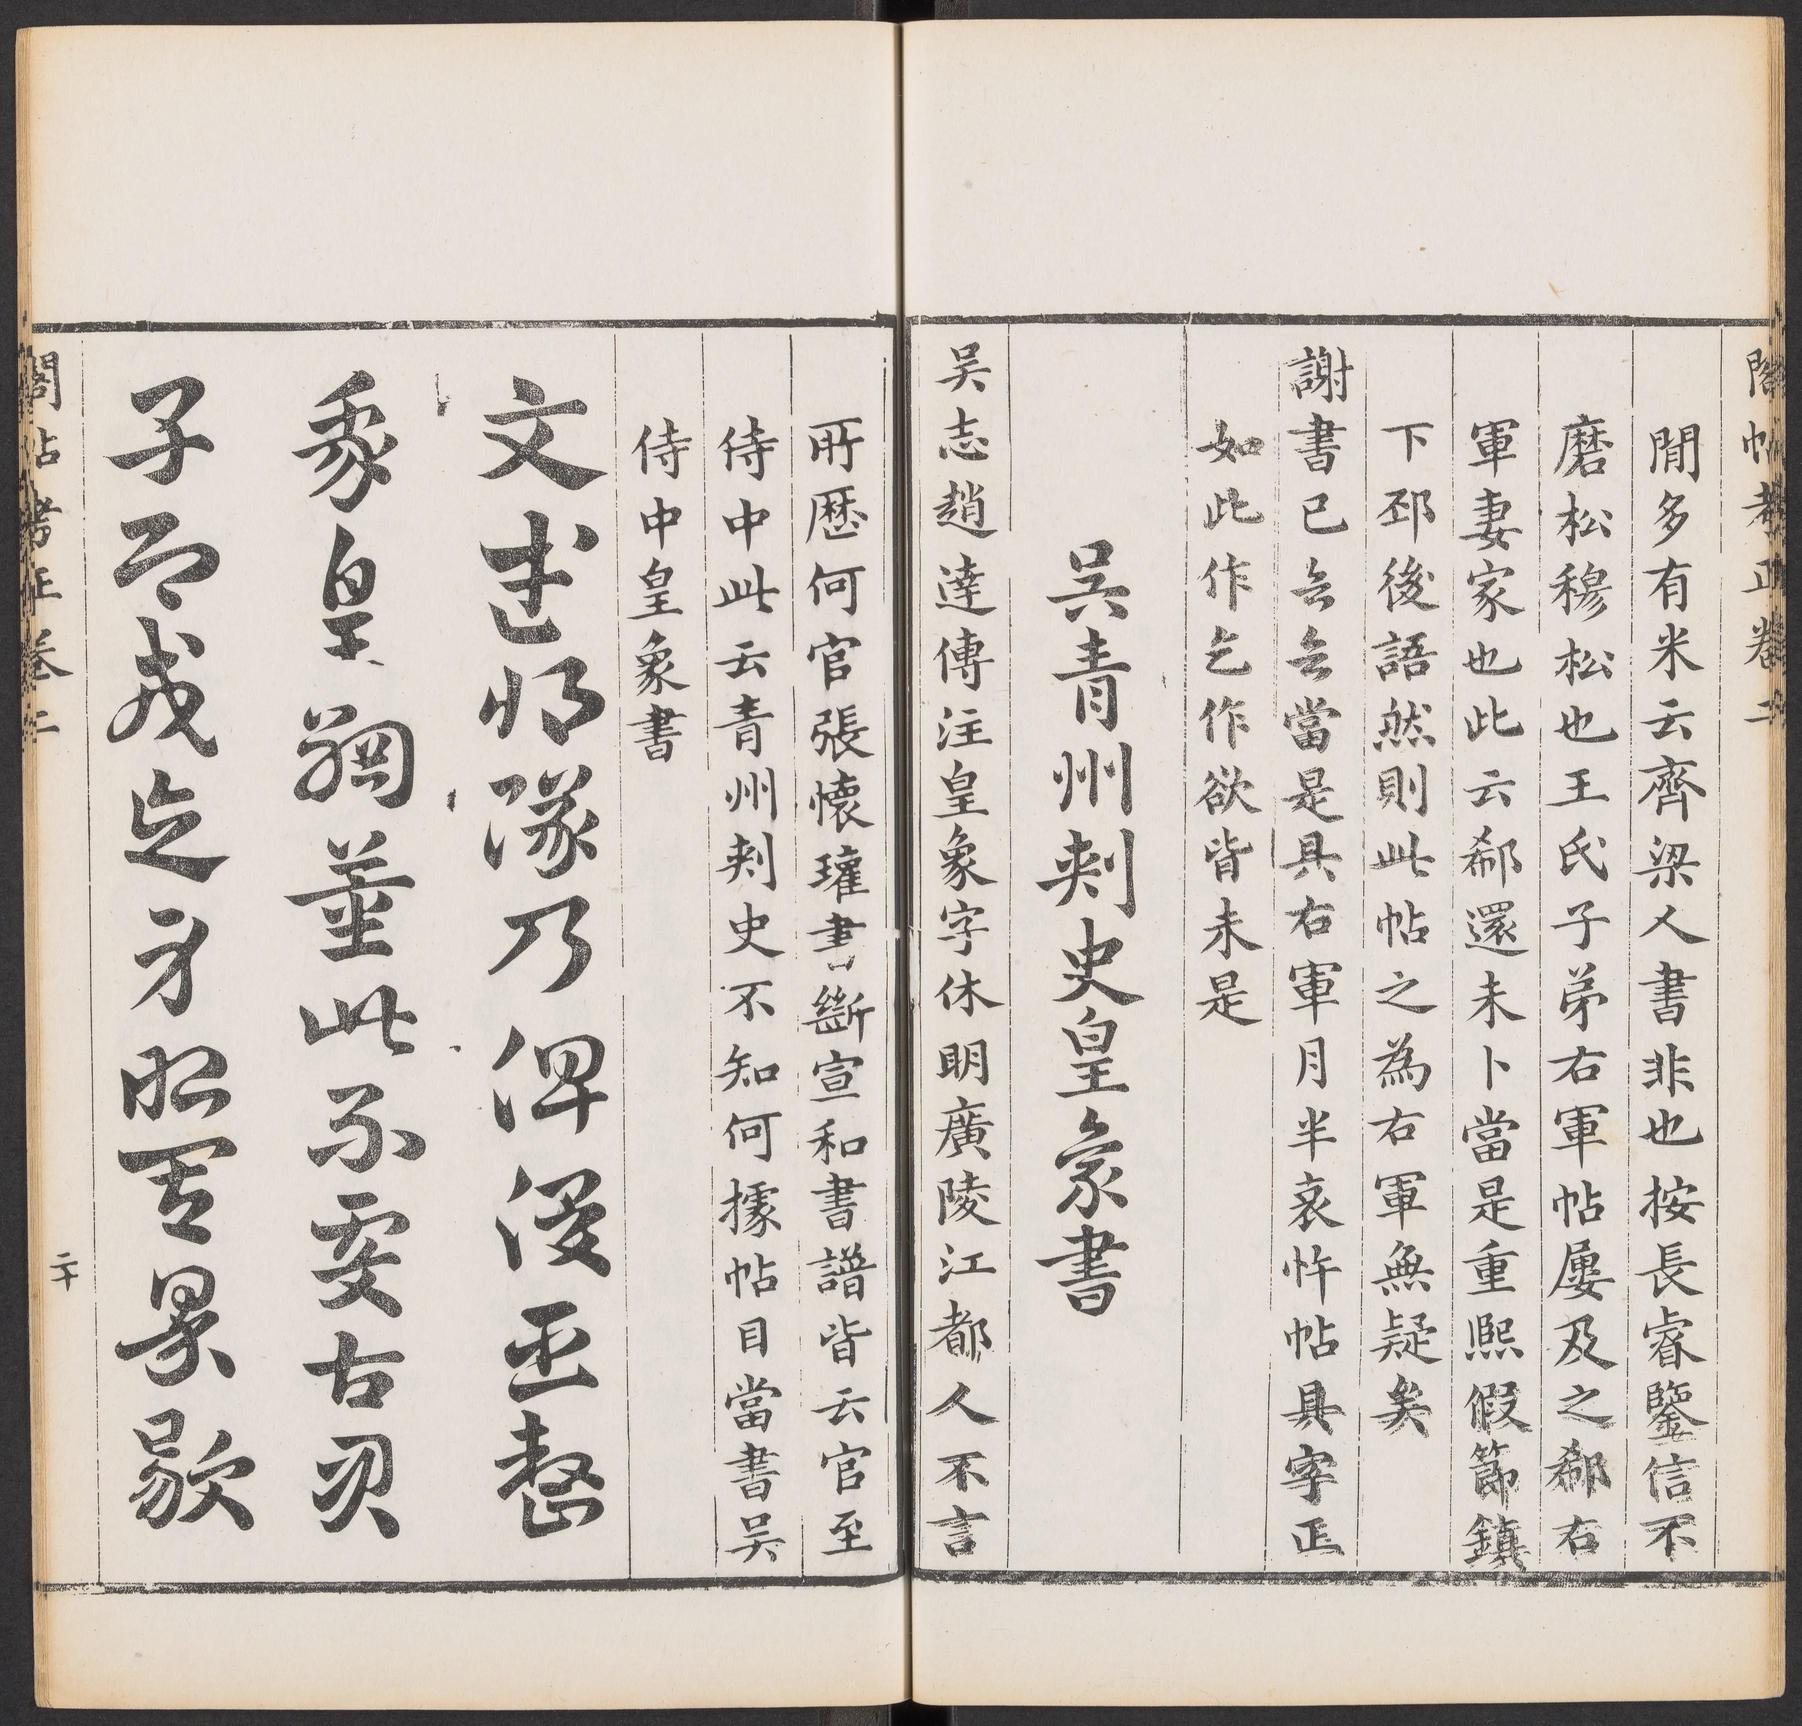 閣帖考正卷二
閒多有米云齊梁人書非也按長睿鑒信不
磨松穆松也王氏子弟右軍帖屢及之郗右
軍妻家也此云郗還未卜當是重熙假節鎮
下邳後語然則此帖之為右軍無疑矣
謝書已厺厺當是具右軍月半哀忤帖具字正
如此作乞作欲皆未是
吳青州刺史皇象書
吳志趙達傳注皇象字休明廣陵江都人不言
所歷何官張懷瓘書斷宣和書譜皆云官至
侍中此云青州刺史不知何據帖目當書吳
侍中皇象書
文武將隊乃俾俊臣整
我皇綱董此不虔古君
子即戎忘身明其果毅
閣帖考正卷二
二十